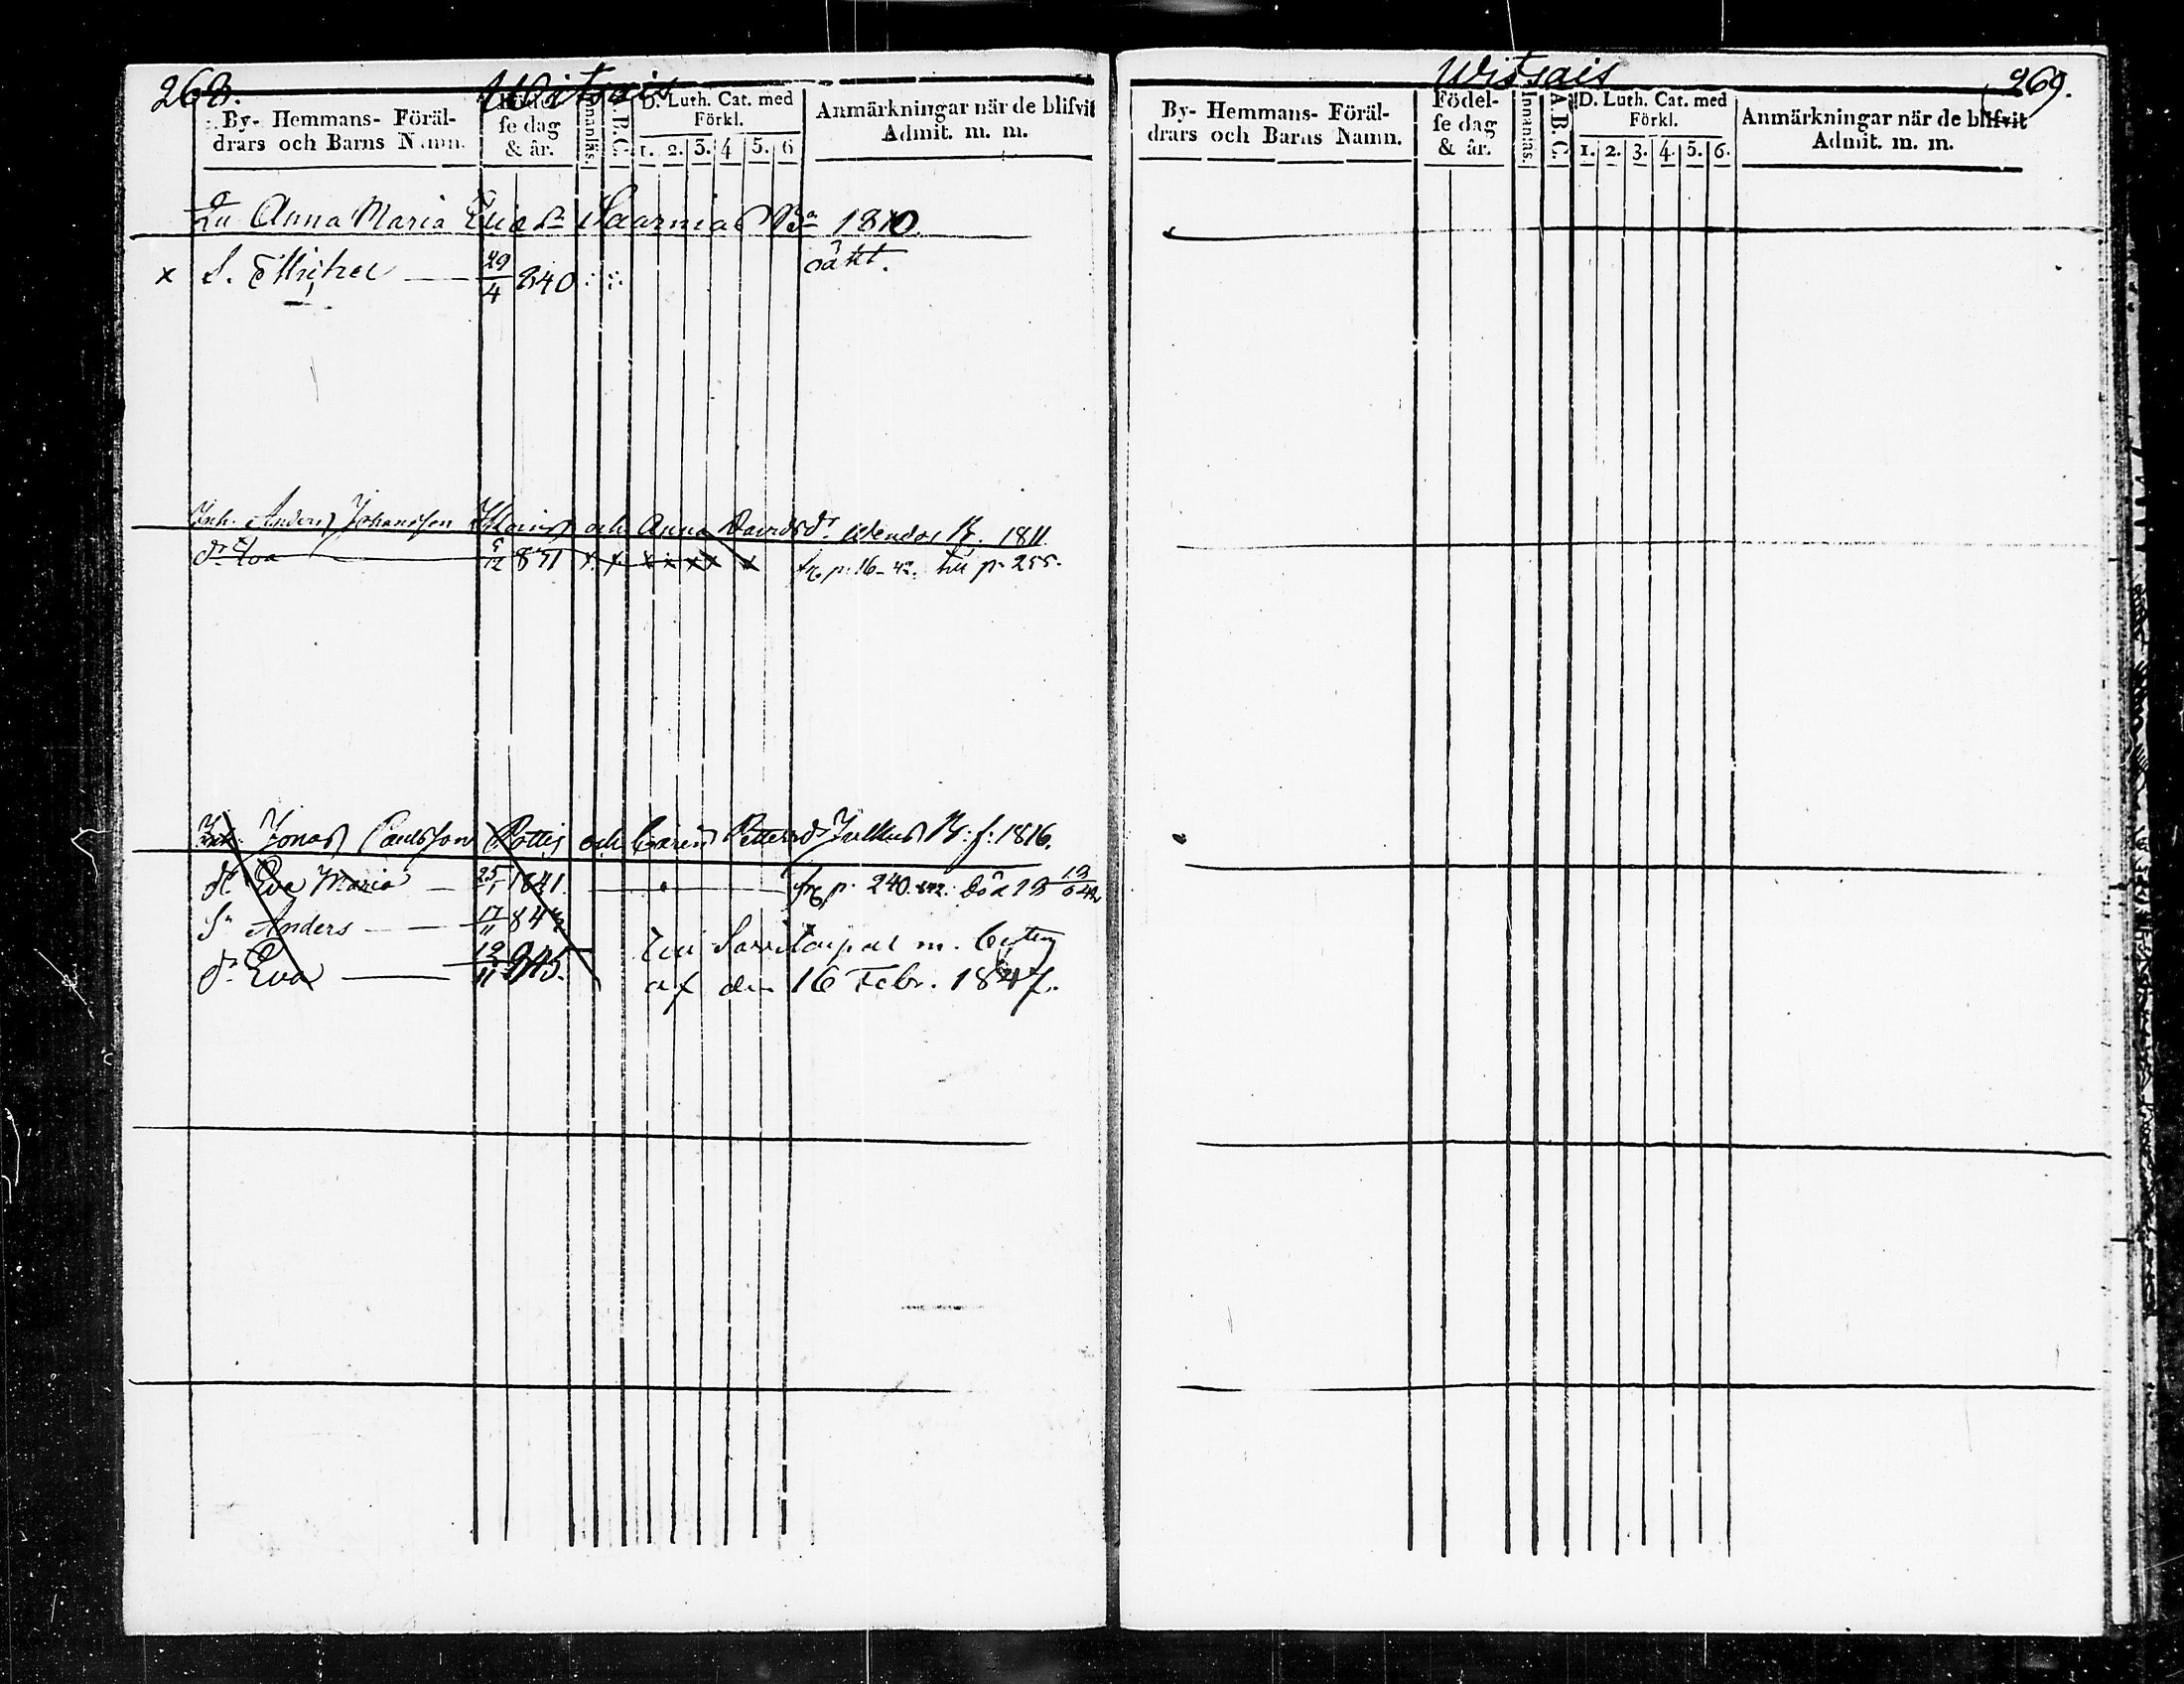 268.
Witsais
By- Hemmans- Föräl-
drars och Barns Namn.
Födel-
se dag
& år.
Innanläs.
A.B.C.
D. Luth. Cat. med
Förkl.
1. 2. 3. 4 5. 6
Anmärkningar när de blifvit
Admit. m. m.
Anna Maria 1810
x S. Michel 29/4 840
oäkt.
Inh. Anders Johansson och Anna Davidsdr. 1811.
dr Eva 5/12 831 x x x x x x x fr. p. 16-42. till p. 255.
Inh. Jonas Paulsson Pottis och Carin Pettersdr Julkus B. f: 1816.
dr Eva Maria 25/1 1841. fr. p. 240. 842. död
Sn Anders 17/11 843
dr Eva 12/11 845.
Till m.
af den 16 Febr. 1847.
Witsais
269.
By- Hemmans- Föräl-
drars och Barns Namn.
Födel-
se dag
& år.
Innanläs.
A.B.C.
D. Luth. Cat. med
Förkl.
1. 2. 3. 4. 5. 6.
Anmärkningar när de blifvit
Admit. m. m.